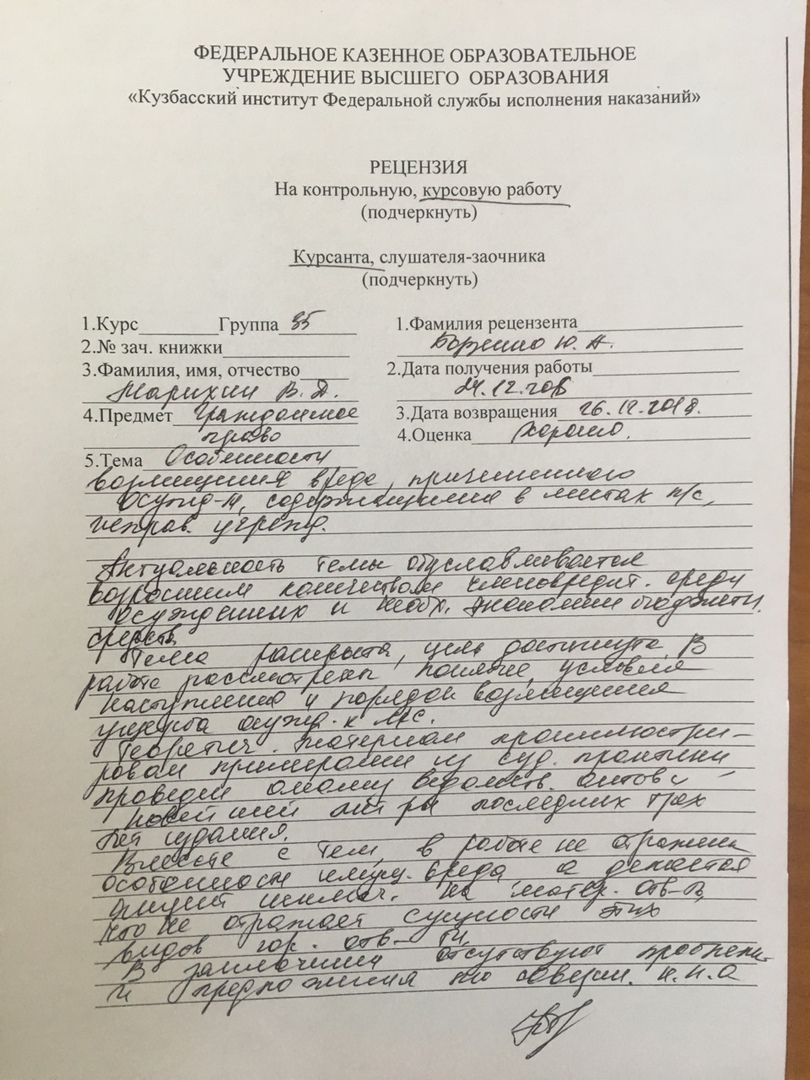 ФЕДЕРАЛЬНОЕ КАЗЕННОЕ ОБРАЗОВАТЕЛЬНОЕ
УЧРЕЖДЕНИЕ ВЫСШЕГО ОБРАЗОВАНИЯ
«Кузбасский институт Федеральной службы исполнения наказаний»
РЕЦЕНЗИЯ
На контрольную, курсовую работу
(подчеркнуть)
Курсанта, слушателя-заочника
(подчеркнуть)
1.Курс________Группа 35
2.№ зач. книжки
3.Фамилия, имя, отчество
Марихин В. Д.
4.Предмет Гражданское
право
1.Фамилия рецензента
Ю. А.
2.Дата получения работы
24.12.2018
3.Дата возвращения 26.12.2018.
4.Оценка хорошо.
5.Тема Особенности
возмещения вреда, причиненного
осужд-м, содержащимся в местах л/с,
исправ. учрежд.
Актуальность темы обуславливается
возросшим количеством членовредит. среди
осужденных и необх. экономии бюджетн.
средств.
Тема раскрыта, цель достигнута. В
работе рассмотрены понятие, условия
наступления и порядок возмещения
ущерба осужд. к л/с.
Теоретич. материал проиллюстри-
рован примерами из суд. практики
проведен анализ ведомств. актов и
новейшей лит-ры последних трех
лет издания.
Вместе с тем, в работе не отражены
особенности вреда, а делается
акцент на матер. отв-ть,
что не отражает сущности этих
видов отв-ти.
В заключении отсутствуют
и предложения по соверш.